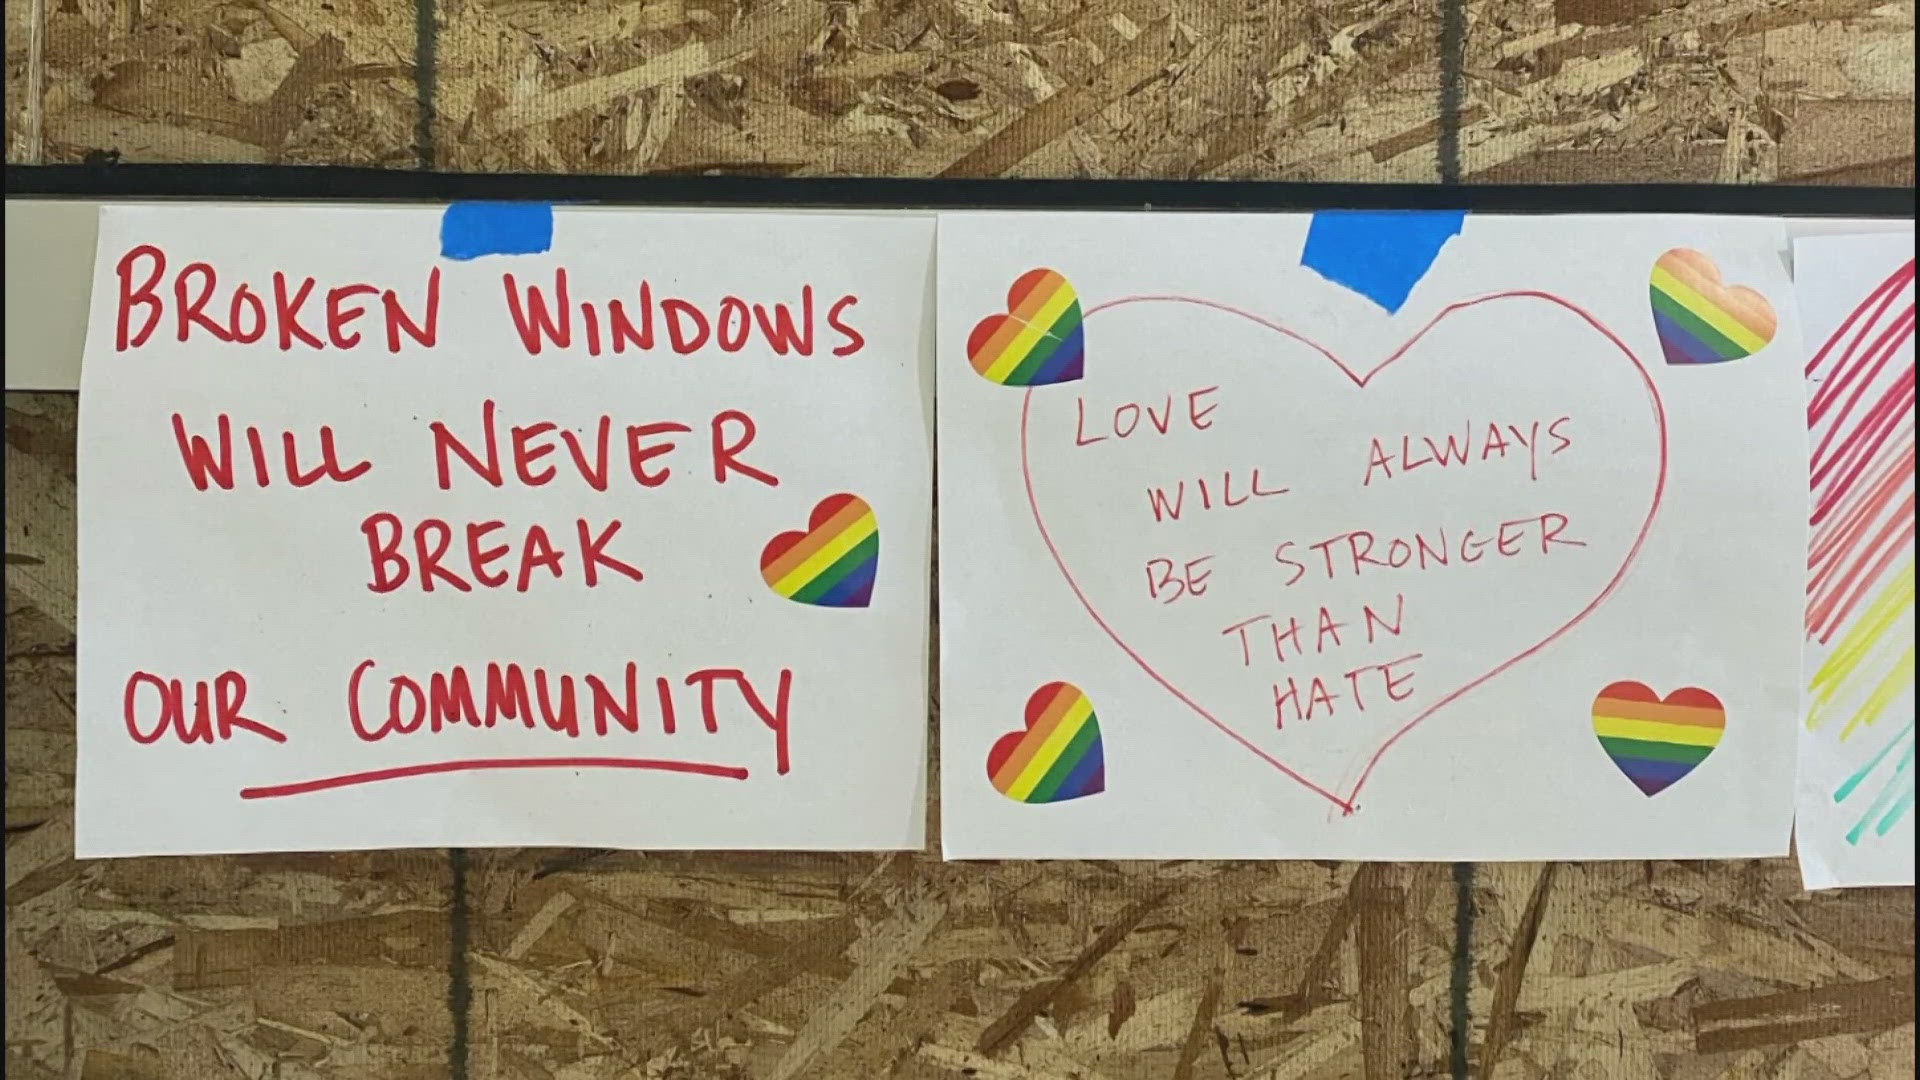 BROKEN WINDOWS
WILL NEVER
BREAK
OUR COMMUNITY
LOVE
WILL ALWAYS
BE STRONGER
THAN
HATE